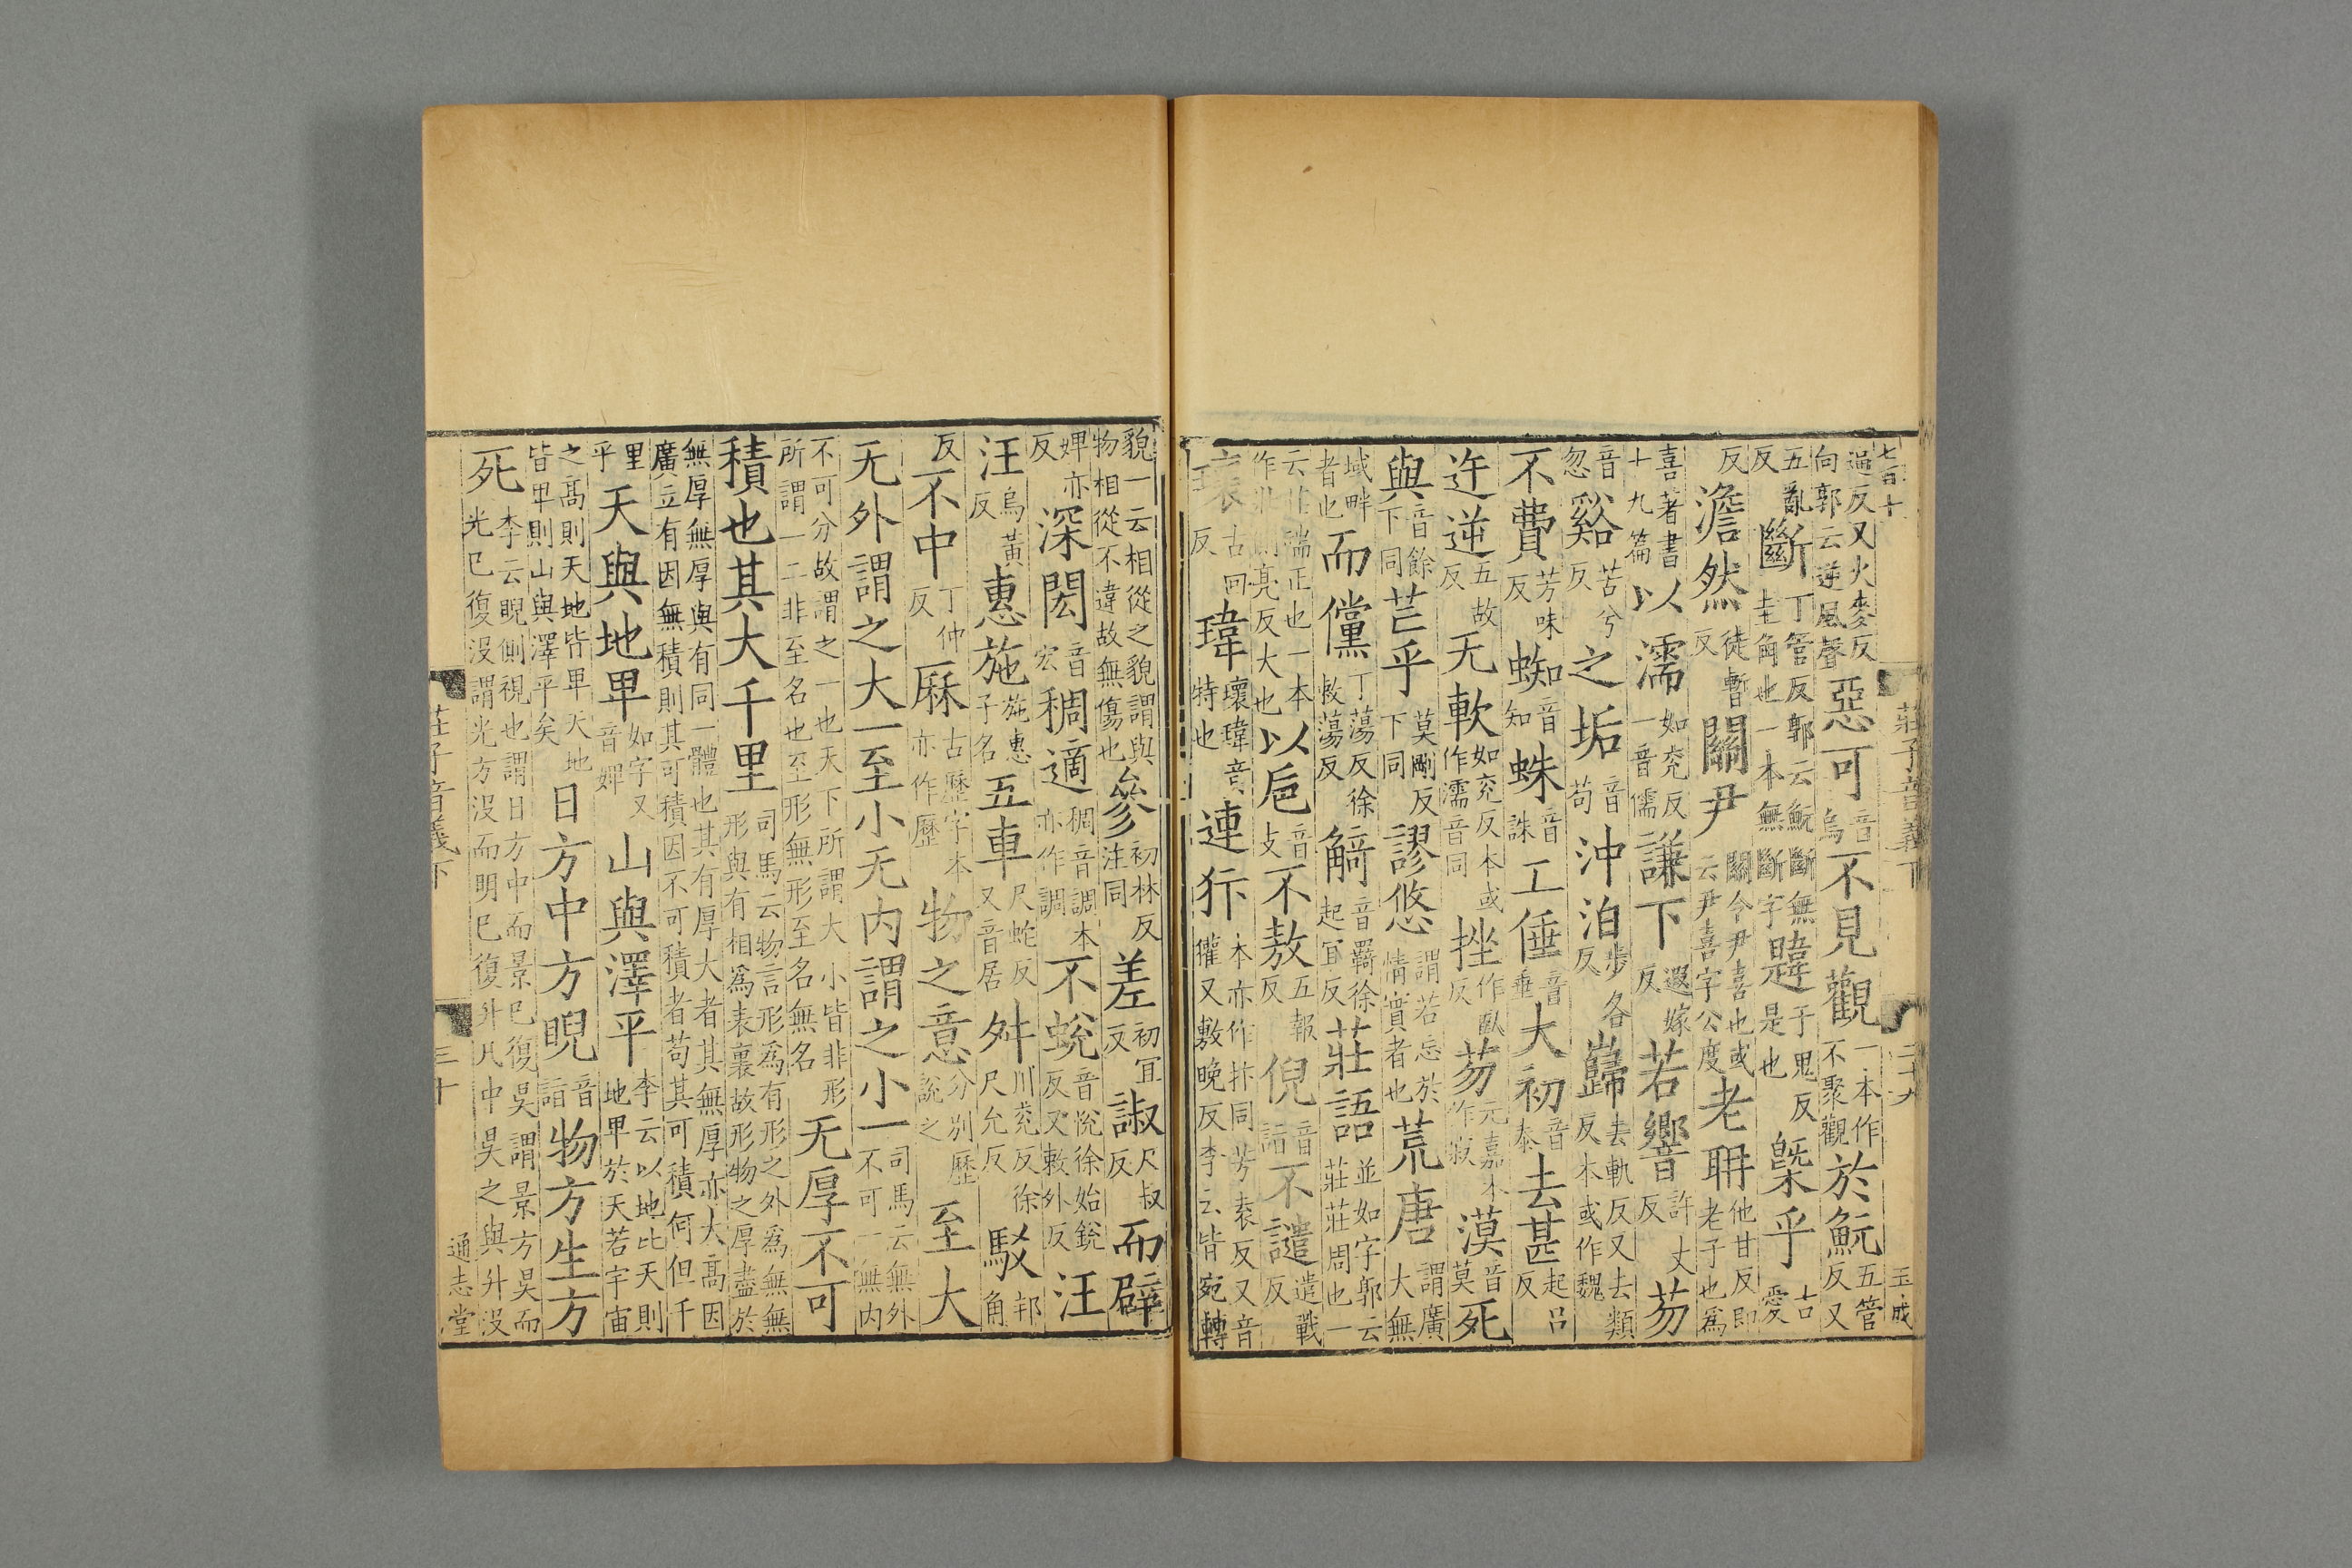 七百十 莊子音義下 二十九 玉成
逼反又火麥反向郭云逆風聲惡可音烏不見觀一本作不聚觀於魭五管反又
五亂反斷丁管反郭云魭斷無圭角也一本無斷字韙于鬼反是也槩乎古愛
反澹然徒暫反關尹關令尹喜也或云尹喜字公度老聃他甘反即老子也爲
喜著書十九篇以濡如兖反一音儒謙下遐嫁反若響許丈反芴
音忽谿苦兮反之垢音苟沖泊步各反巋去軌反又去類反本或作魏
不費芳味反蜘音知蛛音誅工倕音垂大初音泰去甚起吕反
迕逆五故反无軟如兖反本或作濡音同挫作臥反芴元嘉本作寂漠音莫死
與音餘下同芒乎莫剛反下同謬悠謂若忘於情實者也荒唐謂廣大無
域畔者也而儻丁蕩反徐敕蕩反觭音羈徐起宜反莊語並如字郭云莊莊周也一
云莊端正也一本作壯側亮反大也以巵音支不敖五報反倪音詣不譴遣戰反
瓌古回反瑋瓌瑋竒特也連犿本亦作抃同芳袁反又音獾又敷晚反李云皆宛轉
貌一云相從之貌謂與物相從不違故無傷也參初林反注同差初宜反諔尺叔反而辟
婢亦反深閎音宏稠適稠音調本亦作調不蛻音悅徐始銳反又敕外反汪
汪烏黄反惠施施惠子名五車尺蛇反又音居舛川兖反徐尺允反駁邦角
反不中丁仲反厤古歷字本亦作歷物之意分別歷說之至大
无外謂之大一至小无内謂之小一司馬云無外不可一無内
不可分故謂之一也天下所謂大小皆非形所謂一二非至名也至形無形至名無名无厚不可
積也其大千里司馬云物言形爲有形之外爲無無形與有相爲表裏故形物之厚盡於
無厚無厚與有同一體也其有厚大者其無厚亦大高因廣立有因無積則其可積因不可積者苟其可積何但千
里乎天與地卑如字又音婢山與澤平李云以地比天則地卑於天若宇宙
之高則天地皆卑天地皆卑則山與澤平矣日方中方睨音詣物方生方
死李云睨側視也謂日方中而景已復昃謂景方昃而光已復没謂光方没而明已復升凡中昃之與升没
莊子音義下 三十 通志堂